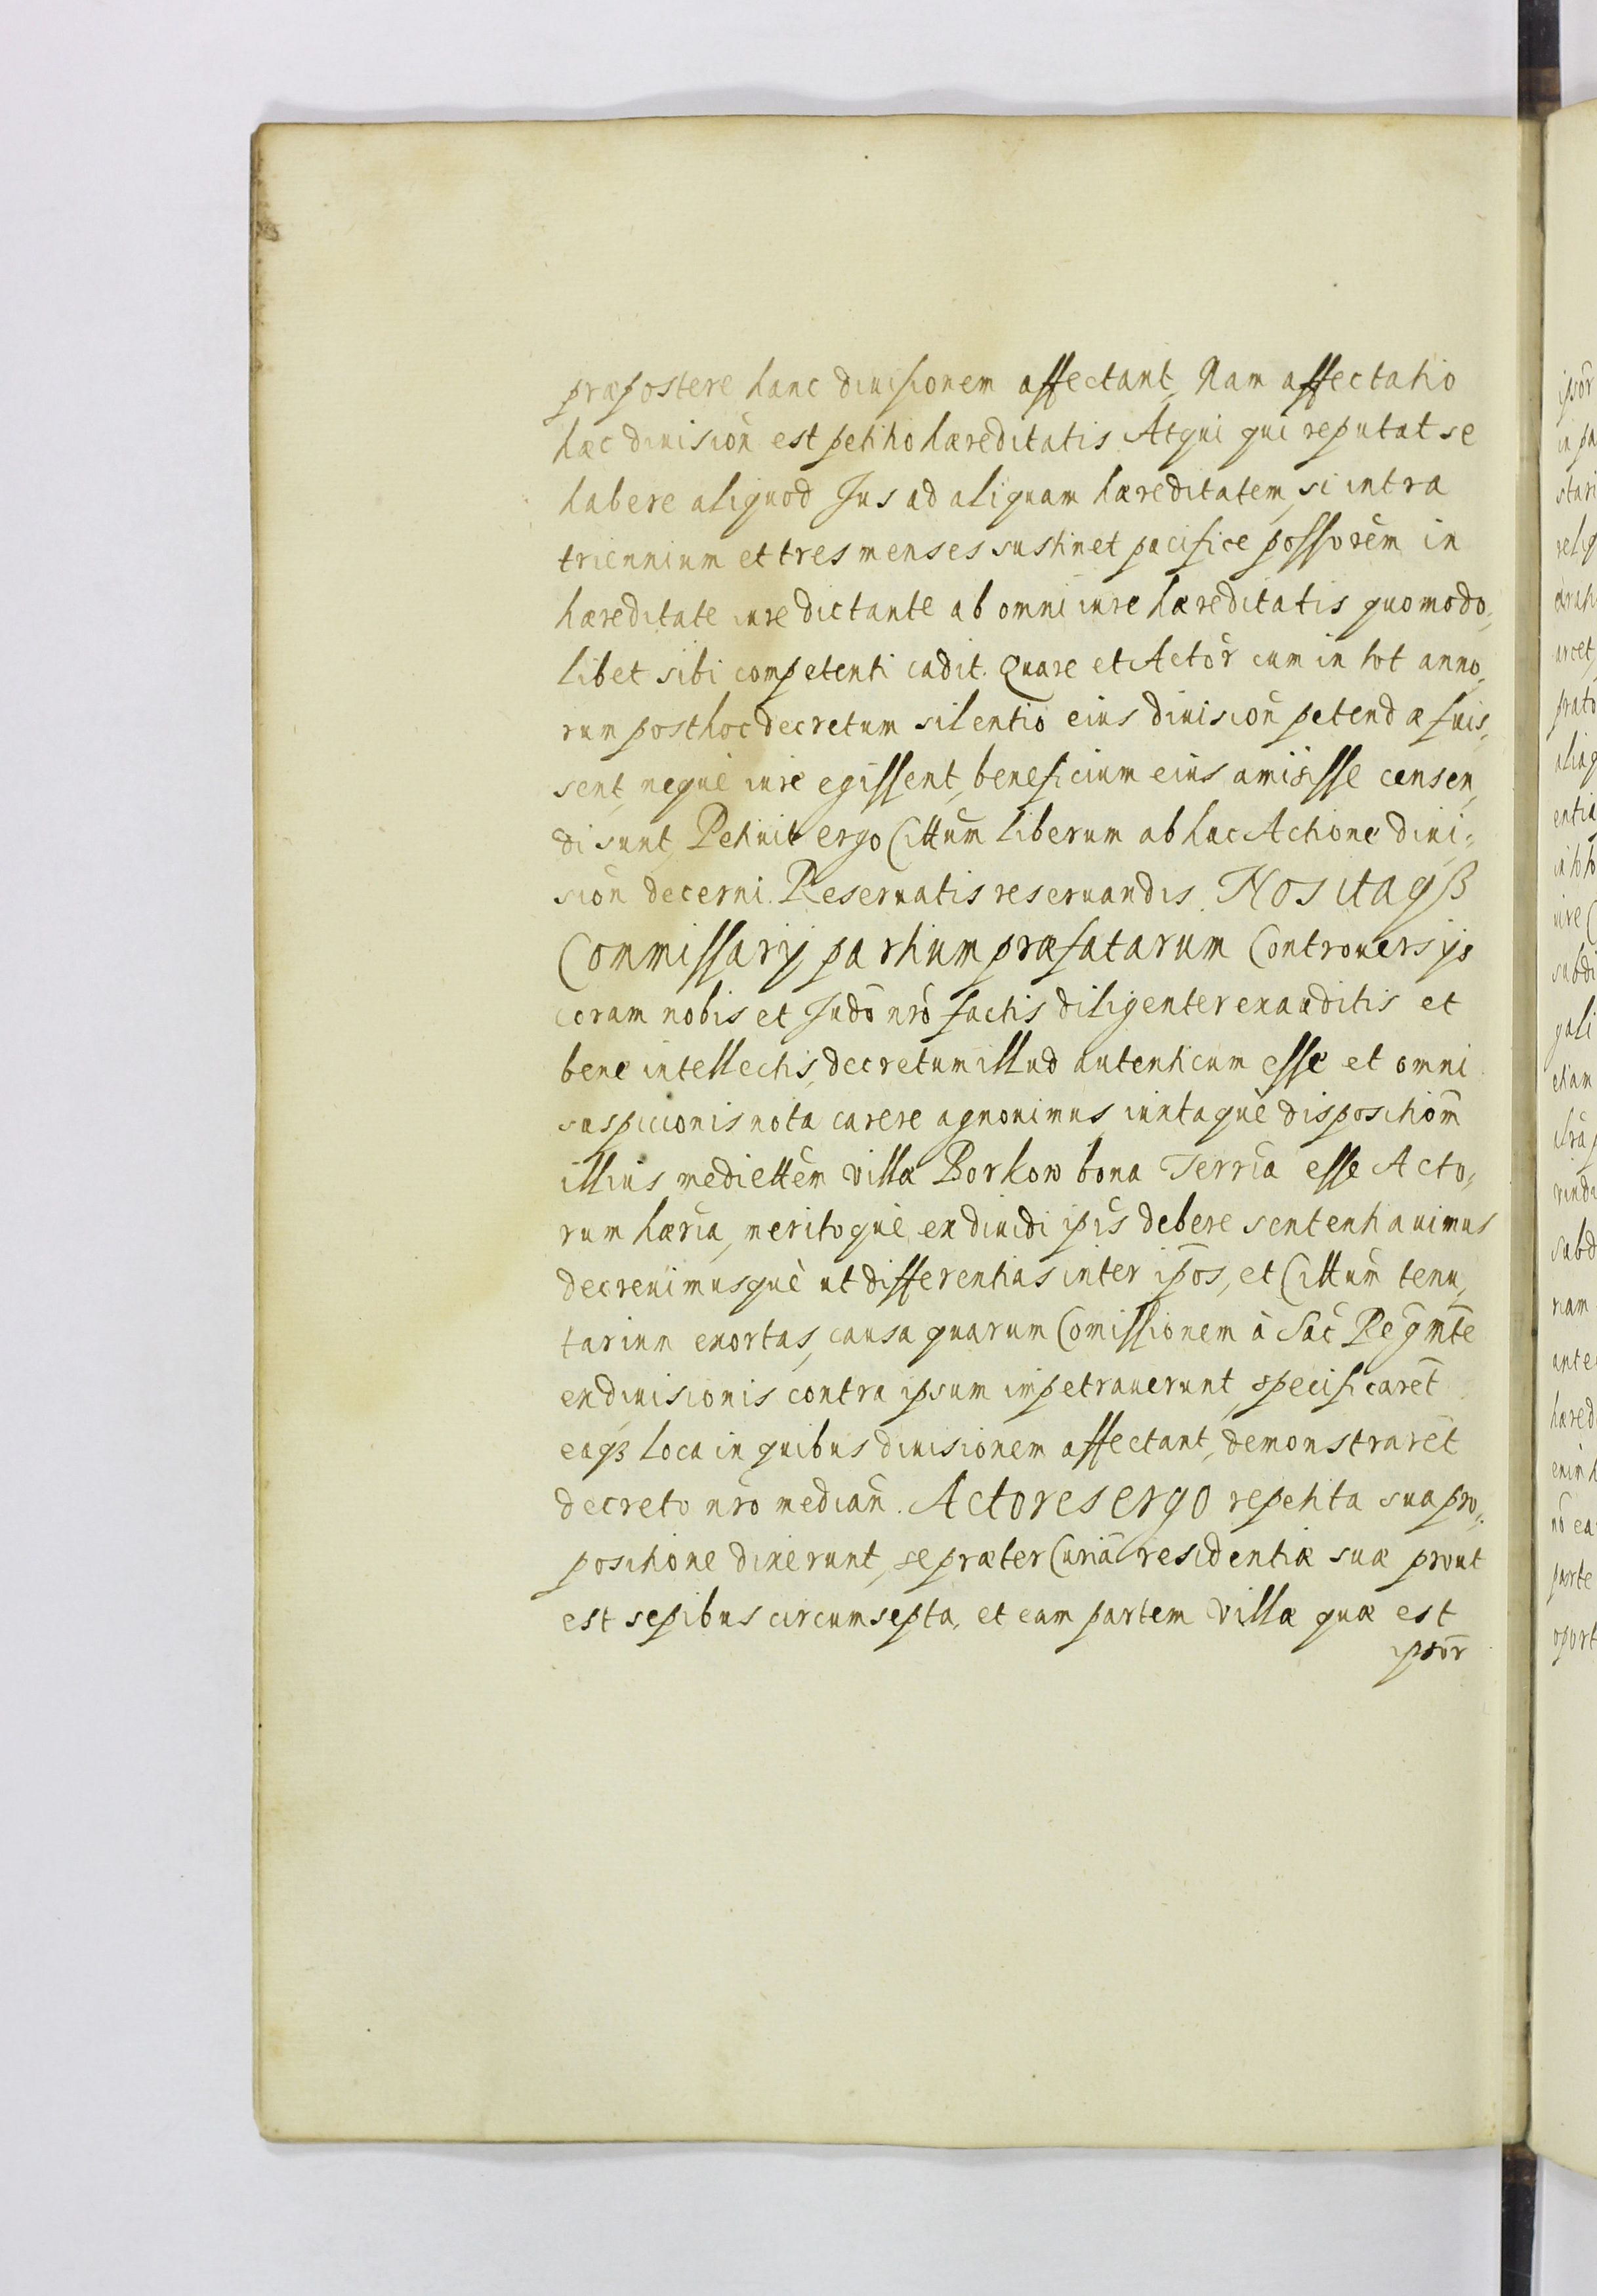 præpostere hanc diuisionem affectant, Nam affectatio
hæc diuision̄ est petitio hæreditatis Atqui qui reputat se
habere aliquod Jus ad aliquam hæreditatem, si intra
triennium et tres menses sustinet pacifice possorem̄ in
hæreditate iure dictante ab omni iure hæreditatis quomodo,
libet sibi competenti cadit. Quare et Actor̄ cum in tot anno,
rum post hoc decretum silentio eius diuision̄ petendæ fuis,
sent, neque iure egissent, beneficium eius amisisse censen,
di sunt, Petiuit ergo Cittum̄ liberum ab hac Actione diui,
sion̄ decerni. Reseruatis reseruandis. Nos itaqꝫ
Commissarij partium præfatarum Controuersijs
coram nobis et Judō nrō factis diligenter exauditis et
bene intellectis, decretum illud autenticum esse et omni
suspicionis nota carere agnouimus iuxtaque dispositiōm
illius mediettēm villæ Borkow bona Terrīa esse Acto,
rum hærīa, meritoque exdiuidi ip̄is debere sententiauimus
decreuimusquè ut differentias inter ip̄os, et Cittum̄ tenu,
tarium exortas, causa quarum Comissionem à Sac̄ Reḡ mt̄e
exdiuisionis contra ipsum impetrauerunt, specificaret̄
eaqꝫ loca in quibus diuisionem affectant, demonstraret̄
decreto nrō median̄. Actores ergo repetita sua pro,
positione dixerunt, se præter Curiā residentiæ suæ prout
est sepibus circumsepta, et eam partem villæ quæ est
ipsor̄
ipsor̄